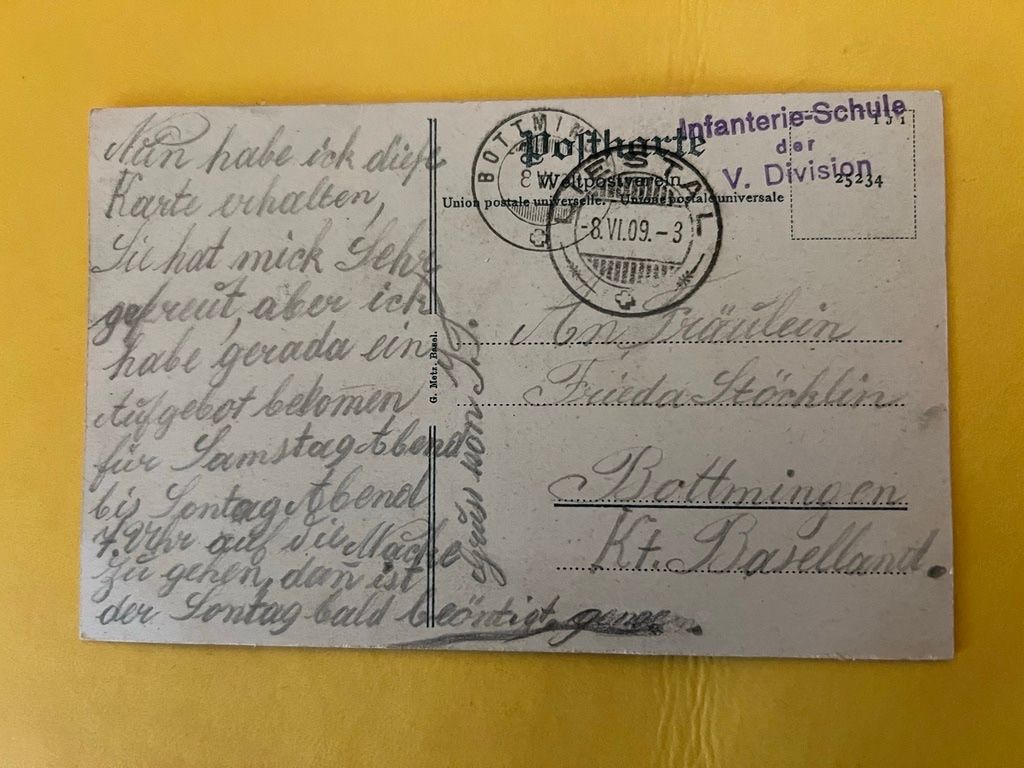 Nun habe ick diese
Karte erhalten,
Sie hat mick Sehr
gefreut, aber ick
habe gerada ein
Aufgebot bekomen
für Samstag Abend
bis Sontag Abend
7. Uhr auf die Wache
zu gehen, dan̄ ist
der Sontag bald beöntigt
Gruss von
G. Metz, Basel.
BOTTMIN
8
Postkarte
Weltpostverein
Union postale universelle. — Unione postale universale
LIESTAL
-8.VI.09.-3
Infanterie-Schule
der
V. Division
25234
An Fräulein
Frieda Stöcklin
Bottmingen
Kt. Baselland.